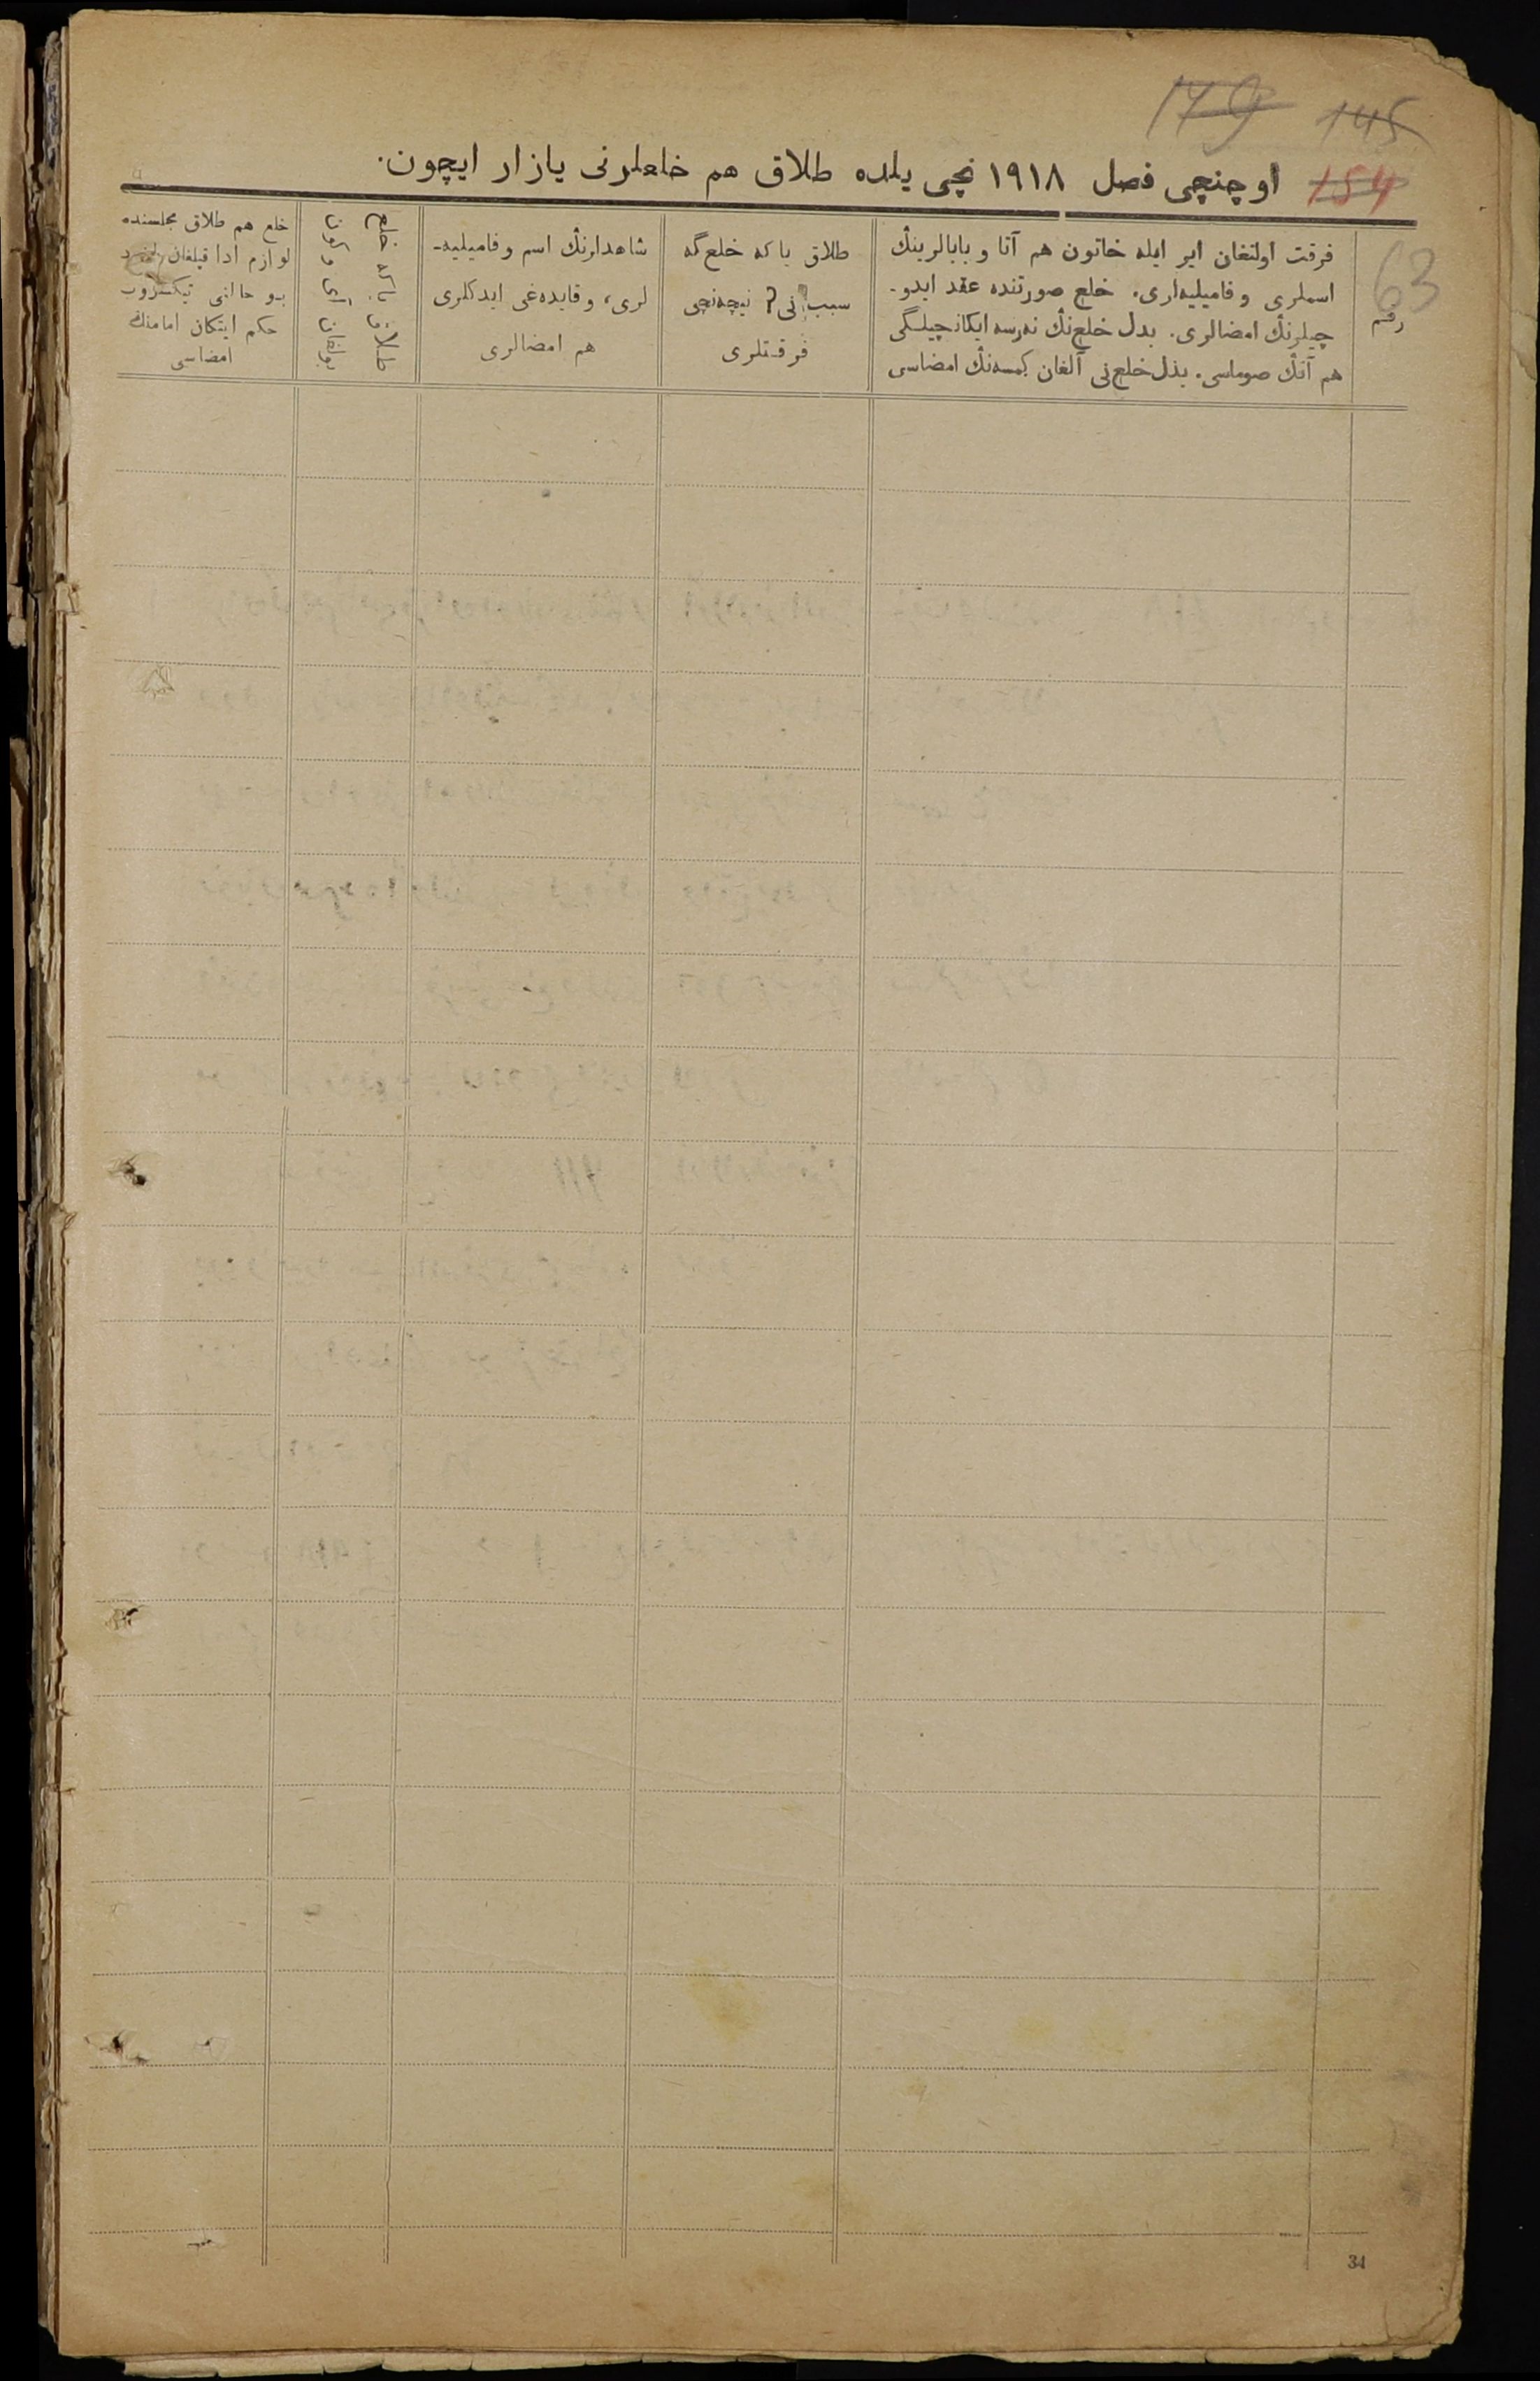 179 145
154
اوچنچی فصل ١٩١٨ نچی یلده طلاق هم خلعلرنی یازار ایچون.
63
رقم
فرقت اولنغان ایر ایله خاتون هم آتا و بابالرینڭ
اسملری و فامیلیه‌لری. خلع صورتنده عقد ایدو-
چیلرنڭ امضالری. بدل خلع‌نڭ نه‌رسه ایکانچیلگی
هم آنڭ صوماسی. بذل خلع‌نی آلغان کمسه‌نڭ امضاسی
طلاق یا که خلع گه
سبب نی؟ نیچه‌نچی
فرقتلری
شاهدلرنڭ اسم و فامیلیه-
لری، و قایده‌غی ایدکلری
هم امضالری
طلاق یا که خلع
بولغان آی و کون
خلع هم طلاق مجلسنده
لوازم ادا قیلغان
بو حالنی تیکشروب
حکم ایتکان امامنڭ
امضاسی
34